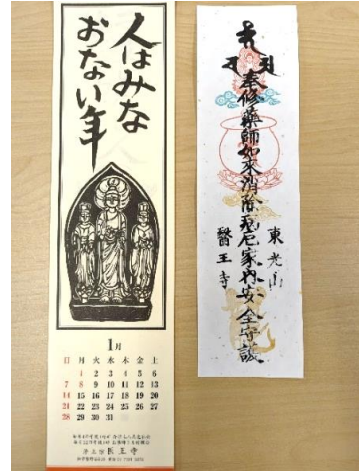 人はみな
おない年
1月
日 月 火 水 木 金 土
1 2 3 4 5 6
7 8 9 10 11 12 13
14 15 16 17 18 19 20
21 22 23 24 25 26 27
28 29 30 31
浄土宗 医王寺
奉修薬師如来消除厄厄家内安全守誠
東光山
醫王寺